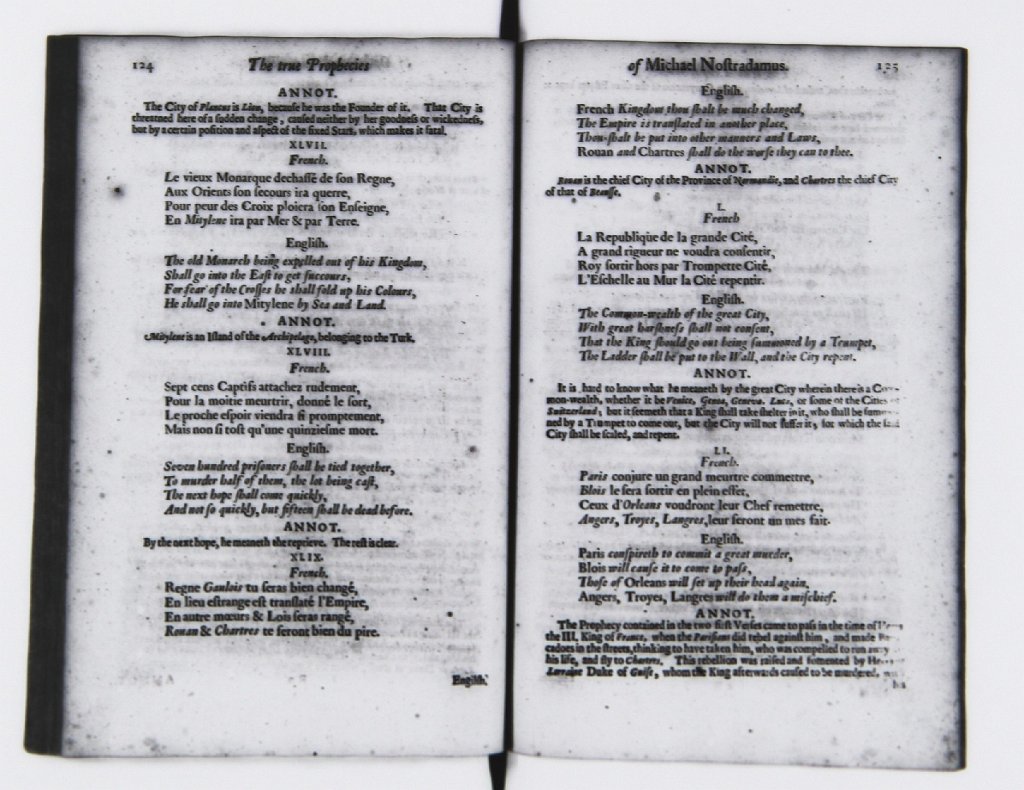 124
The true Prophecies
ANNOT.
The City of Plancus is Lion, because he was the Founder of it. That City is
threatned here of a sudden change, caused neither by her goodness or wickedness,
but by a certain position and aspect of the fixed Stars, which makes it fatal.
XLVII.
French.
Le vieux Monarque dechassé de son Regne,
Aux Orients son secours ira querre,
Pour peur des Croix ploiera son Enseigne,
En Mitylene ira par Mer & par Terre.
English.
The old Monarch being expelled out of his Kingdom,
Shall go into the East to get succours,
For fear of the Crosses he shall fold up his Colours,
He shall go into Mitylene by Sea and Land.
ANNOT.
Mitylene is an Island of the Archipelago, belonging to the Turk.
XLVIII.
French.
Sept cens Captifs attachez rudement,
Pour la moitie meurtrir, donné le sort,
Le proche espoir viendra si promptement,
Mais non si tost qu'une quinziesme mort.
English.
Seven hundred prisoners shall be tied together,
To murder half of them, the lot being cast,
The next hope shall come quickly,
And not so quickly, but fifteen shall be dead before.
ANNOT.
By the next hope, he meaneth the reprieve. The rest is clear.
XLIX.
French.
Regne Gaulois tu seras bien changé,
En lieu estrange est translaté l'Empire,
En autre mœurs & Lois seras rangé,
Rouan & Chartres te feront bien du pire.
English.
of Michael Nostradamus.
125
English.
French Kingdom thou shalt be much changed,
The Empire is translated in another place,
Thou shalt be put into other manners and Laws,
Rouan and Chartres shall do the worse they can to thee.
ANNOT.
Rouan is the chief City of the Province of Normandie, and Chartres the chief City
of that of Beausse.
L.
French
La Republique de la grande Cité,
A grand rigueur ne voudra consentir,
Roy sortir hors par Trompette Cité,
L'Eschelle au Mur la Cité repentir.
English.
The Common-wealth of the great City,
With great harshness shall not consent,
That the King should go out being summoned by a Trumpet,
The Ladder shall be put to the Wall, and the City repent.
ANNOT.
It is hard to know what he meaneth by the great City wherein there is a Com-
mon-wealth, whether it be Venice, Genoa, Geneva, Luca, or some of the Cities of
Suitzerland; but it seemeth that a King shall take shelter in it, who shall be summo-
ned by a Trumpet to come out, but the City will not suffer it, for which the said
City shall be scaled, and repent.
LI.
French.
Paris conjure un grand meurtre commettre,
Blois le fera sortir en plein effet,
Ceux d'Orleans voudront leur Chef remettre,
Angers, Troyes, Langres, leur feront un mes fait.
English.
Paris conspireth to commit a great murder,
Blois will cause it to come to pass,
Those of Orleans will set up their head again,
Angers, Troyes, Langres will do them a mischief.
ANNOT.
The Prophecy contained in the two first Verses came to pass in the time of
the III. King of France, when the Parisians did rebel against him, and made
cadoes in the streets, thinking to have taken him, who was compelled to run away
his life, and fly to Chartres. This rebellion was raised and fomented by
Lorraine Duke of Guise, whom the King afterwards caused to be murdered,